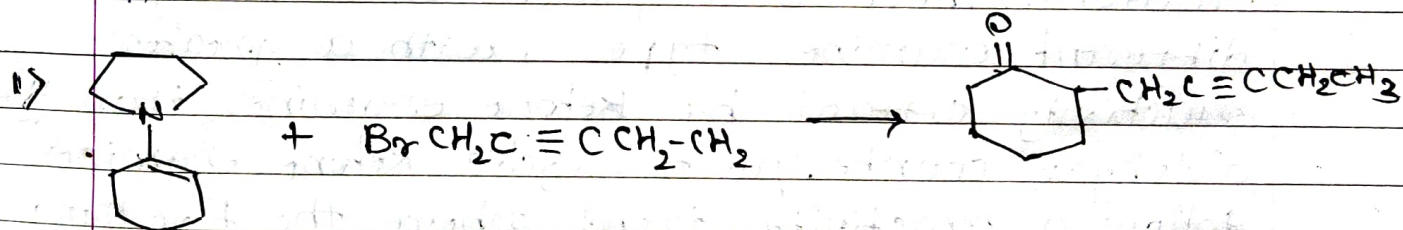 1>
O
N + BrCH₂C≡CCH₂-CH₂ → CH₂C≡CCH₂CH₃